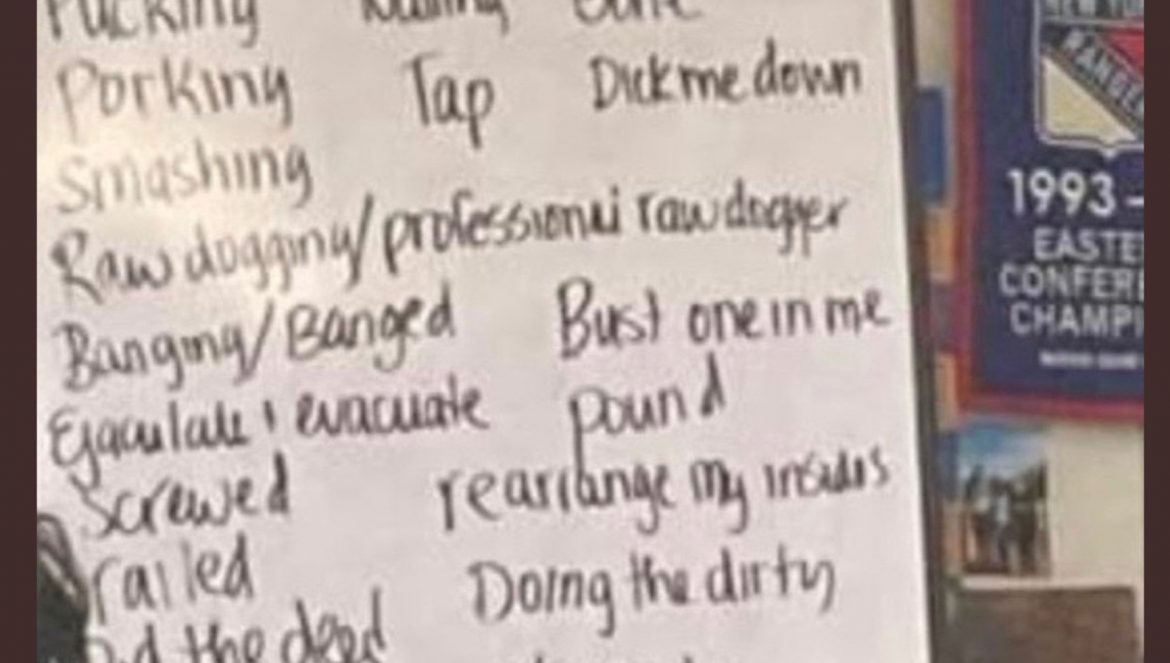 Porking Tap Dick me down
Smashing
Rawdogging/professional rawdogger
Banging/Banged Bust one in me
Ejaculate & evacuate pound
Screwed rearrange my insides
railed Doing the dirty
the deed
RANGE
1993 -
EASTE
CONFER
CHAMPI